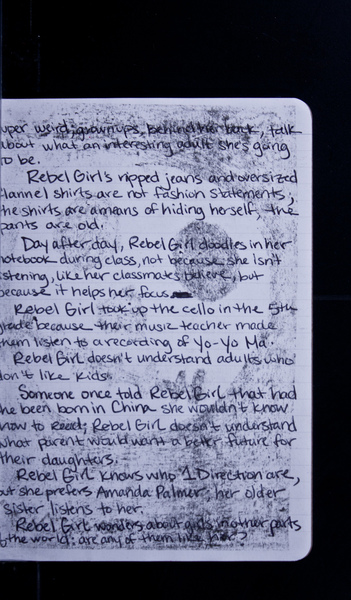 uper weird; grownups, behind her back, talk
about what an interesting adult she's going
to be.
Rebel Girl's ripped jeans and oversized
flannel shirts are not fashion statements;
the shirts are a means of hiding herself, the
pants are old.
Day after day, Rebel Girl doodles in her
notebook during class, not because she isn't
istening, like her classmates believe, but
because it helps her focus.
Rebel Girl took up the cello in the 5th
grade because their music teacher made
them listen to a recording of Yo-Yo Ma.
Rebel Girl doesn't understand adults who
don't like kids.
Someone once told Rebel Girl that had
he been born in China she wouldn't know
how to Read; Rebel Girl doesn't understand
what parent would want a better future for
their daughters.
Rebel Girl knows who 1Direction are,
but she prefers Amanda Palmer, her older
sister listens to her.
Rebel Girl wonders about girls in other parts
of the world: are any of them like her?